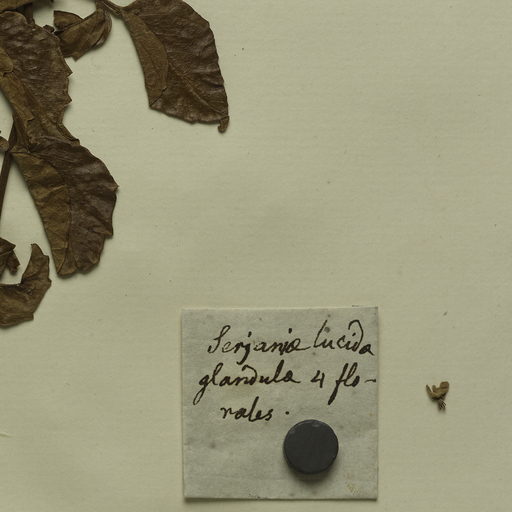 Serjaniæ lucida
glandula 4 flo-
rales.